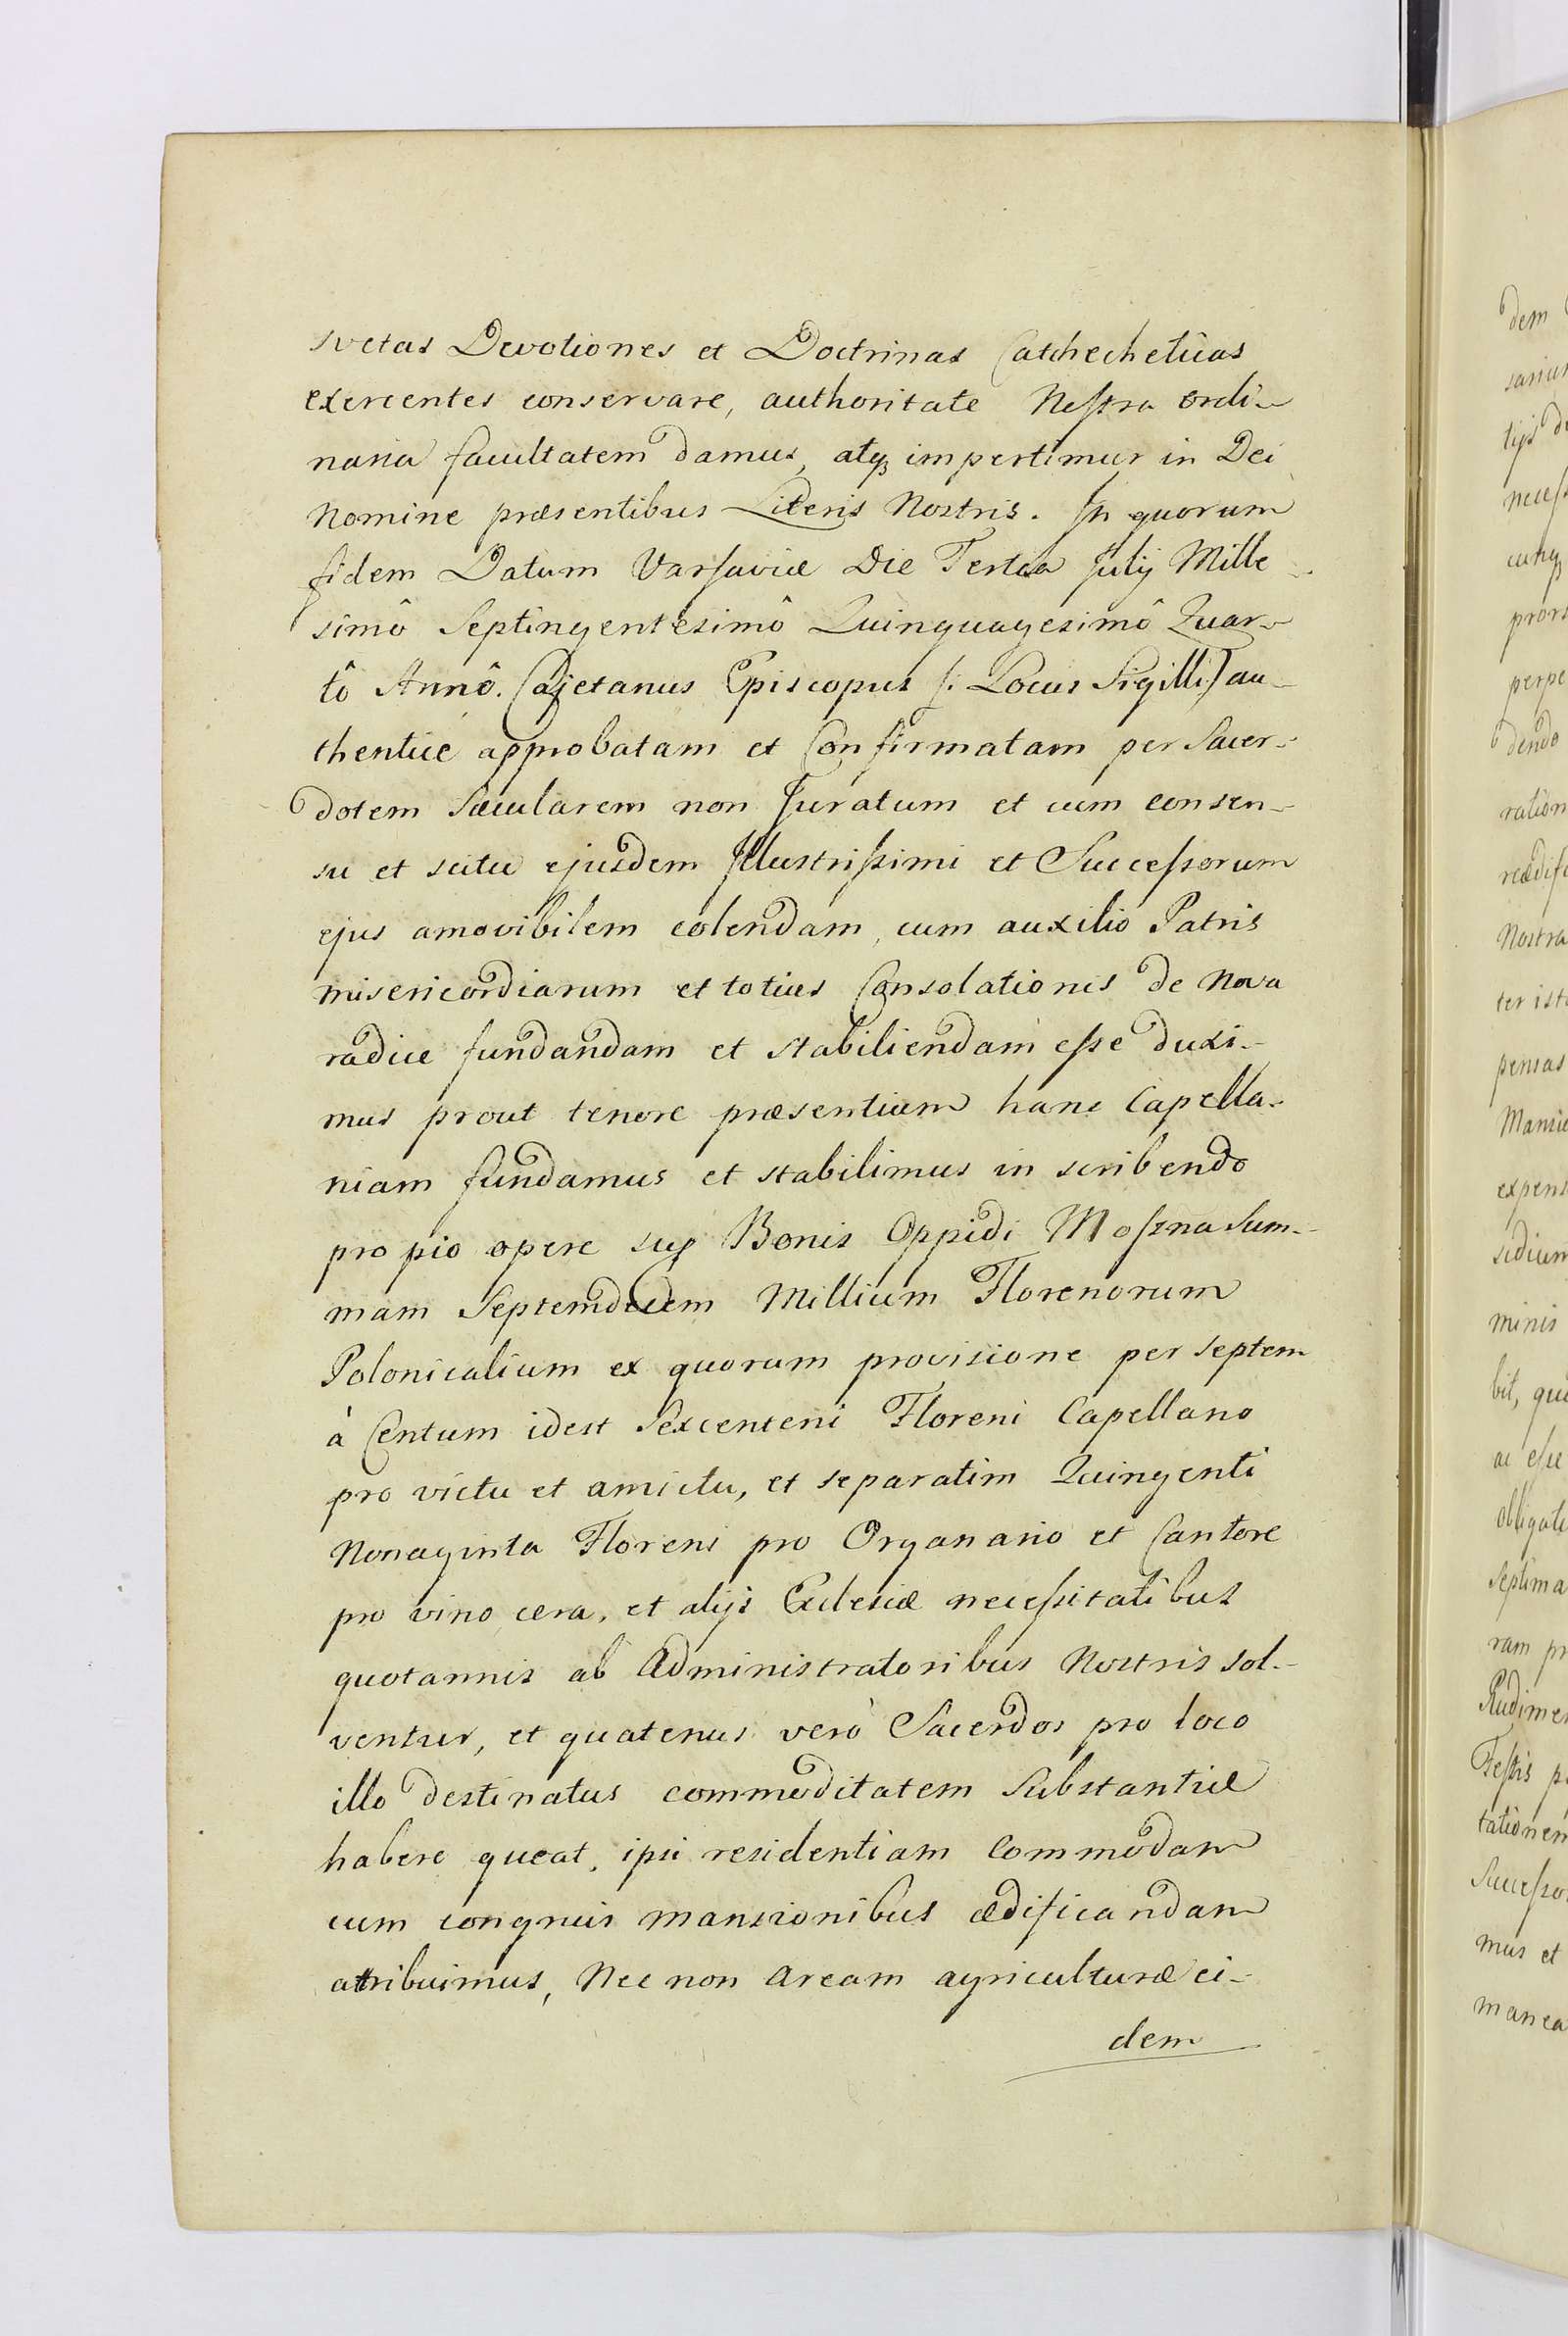 svetas Devotiones et Doctrinas Catchecheticas
exercentes conservare, authoritate Nostra ordi-
naria facultatem damus, atq₃ impertimur in Dei
Nomine præsentibus Literis Nostris. In quorum
fidem Datum Varsaviæ Die Tertia Julij Mille-
simô Septingentesimô Quinquagesimô Quar-
tô Annô. Cajetanus Episcopus (: Locus Sigilli:) au-
thentice approbatam et Confirmatam per Sacer-
dotem Sæcularem non Juratum et cum consen-
su et scitu ejusdem Illustrissimi et Successorum
ejus amovibilem colendam, cum auxilio Patris
misericordiarum et totius Consolationis de Nova
radice fundandam et stabiliendam esse duxi-
mus prout tenore præsentium hanc Capella-
niam fundamus et stabilimus in scribendo
pro pio opere sup Bonis Oppidi Moszna Sum-
mam Septemdecem Millium Florenorum
Polonicalium ex quorum provisione per Septem
à Centum idest Sexcenteni Floreni Capellano
pro victu et amictu, et separatim Quingenti
Nonaginta Floreni pro Organario et Cantore
pro vino cera, et alijs Ecclesiæ necessitatibus
quotannis ab Administratoribus Nostris sol-
ventur, et quatenus verò Sacerdos pro loco
illo destinatus commoditatem Substantiæ
habere queat, ipsi residentiam Commodam
cum congruis mansionibus ædificandam
attribuimus, Nec non aream agriculturæ ei-
dem